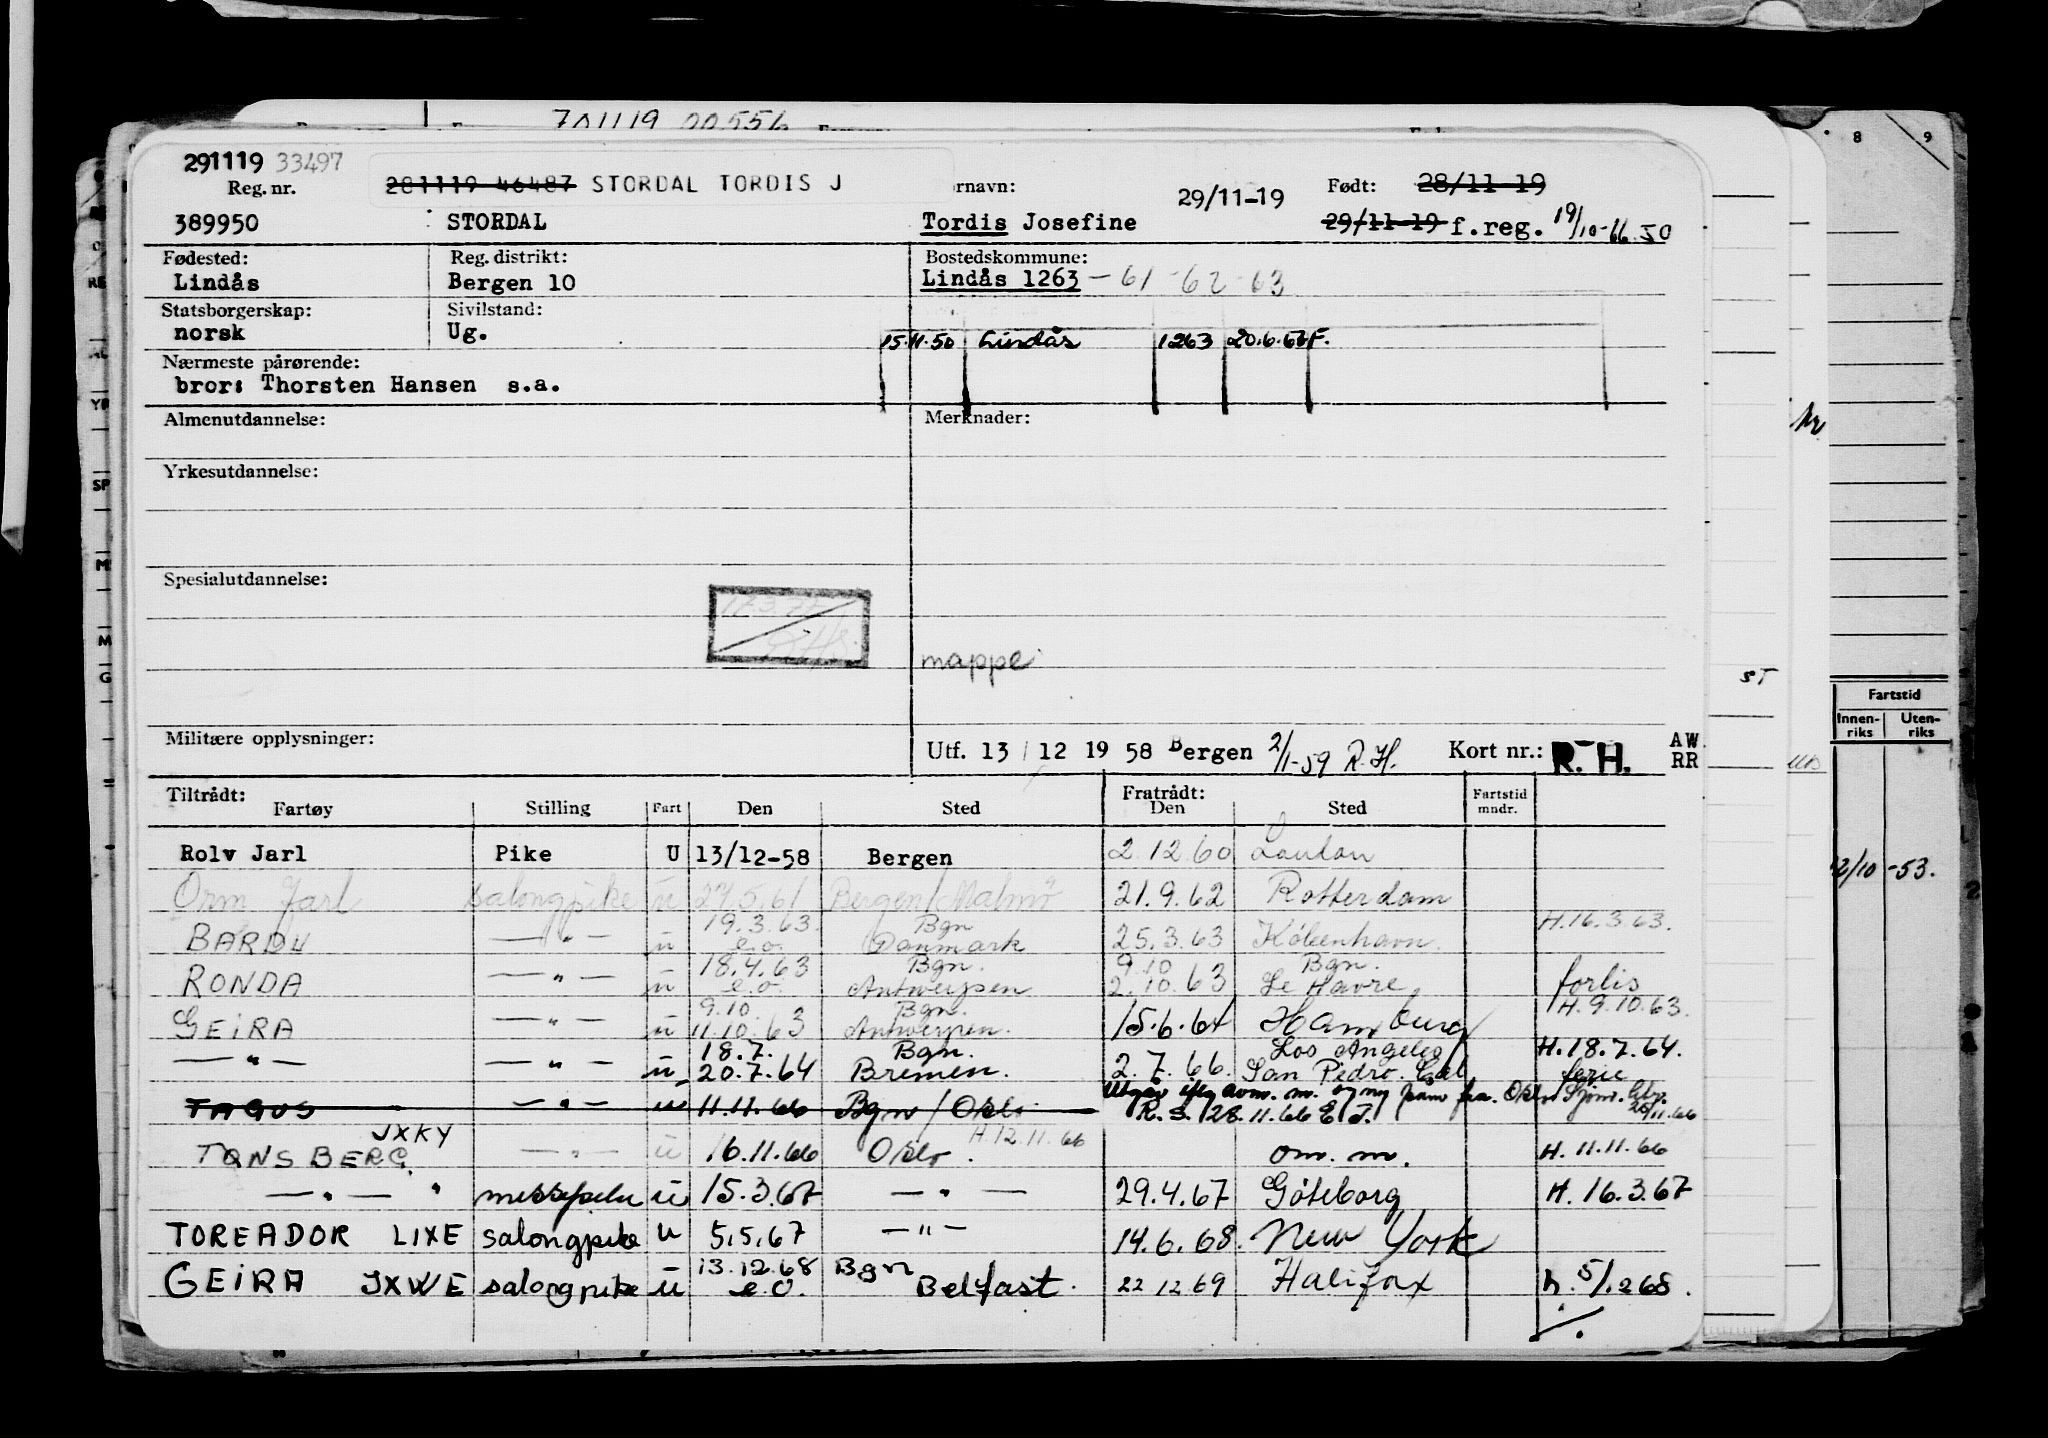 7A1119 00556
8 9
291119 33497
Reg. nr. 281119 46487 STORDAL TORDIS J ornavn: 29/11-19 Født: 28/11-19
389950 STORDAL Tordis Josefine 29/11-19 f.reg. 19/10-66. SO
Fødested: Reg. distrikt: Bostedskommune:
Lindås Bergen 10 Lindås 1263 - 61 - 62 - 63
Statsborgerskap: Sivilstand:
norsk Ug. 15.11.50 Lindås 1263 20.6.67 F.
Nærmeste pårørende:
bror: Thorsten Hansen s.a.
Almenutdannelse: Merknader:
Yrkesutdannelse:
Spesialutdannelse:
mappe
Militære opplysninger: Utf. 13/12 19 58 Bergen 2/1-59 R.H. Kort nr.: R. H. AW
RR
Tiltrådt: Fratrådt: Fartstid
Fartøy Stilling Fart Den Sted Den Sted mndr.
Rolv Jarl Pike U 13/12-58 Bergen 2.12.60 London
Orm Jarl salongpike u 27.5.61 Bergen/Malmø 21.9.62 Rotterdam
19.3.63. Bgn H.16.3.63.
BARDU — " — u e.o. Danmark 25.3.63 København.
18.4.63 Bgn. 9.10 Bgn.
RONDA — " — u e.o. Antwerpen 2.10.63 Le Havre, forlis
9.10. Bgn. H.9.10.63.
GEIRA — " — u 11.10.63 Antwerpen. 15.6.64 Hamburg
18.7. Bgn. Los Angeles H.18.7.64.
— " — — " — u 20.7.64 Bremen. 2.7.66. San Pedro. Cal ferie
TAGUS — " — u 11.11.66 Bgn/Oslo Utgår iflg avm. m. og ny fra. Oslo Sjøm.
R.S. 28.11.66 E.J. 28/11.66
JXKY H.12.11.66
TØNSBERG. — " — u 16.11.66 Oslo. om. m. H. 11.11.66
— " — " u 15.3.67 — " — 29.4.67 Göteborg H. 16.3.67
TOREADOR LIXE salongpike u 5.5.67 — " — 14.6.68. New York
13.12.68 Bgn
GEIRA JXWE salongpike u e.o. Belfast. 22 12 69 Halifax h. 5/1.268.
Fartstid
Innen-riks Uten-riks
12/10 -53.